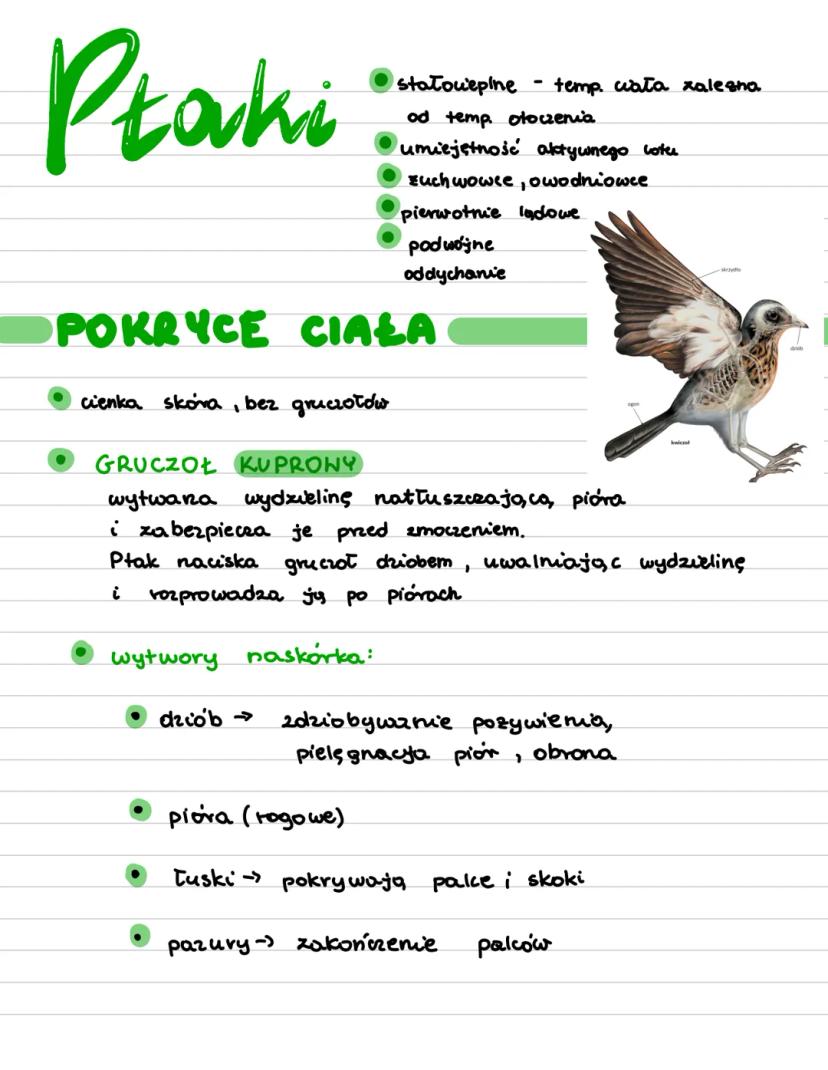 Ptaki
stałocieplne - temp. ciała zależna
od temp. otoczenia
umiejętność aktywnego lotu
żuchwowce, owodniowce
pierwotnie lądowe
podwójne
oddychanie
skrzydło
dziób
ogon
kwiczoł
POKRYCE CIAŁA
cienka skóra, bez gruczołów
GRUCZOŁ KUPROWY
wytwarza wydzielinę natłuszczającą pióra
i zabezpiecza je przed zmoczeniem.
Ptak naciska gruczoł dziobem, uwalniając wydzielinę
i rozprowadza ją po piórach
wytwory naskórka:
dziób → zdziobywanie pożywienia,
pielęgnacja piór, obrona
pióra (rogowe)
łuski → pokrywają palce i skoki
pazury → zakończenie palców